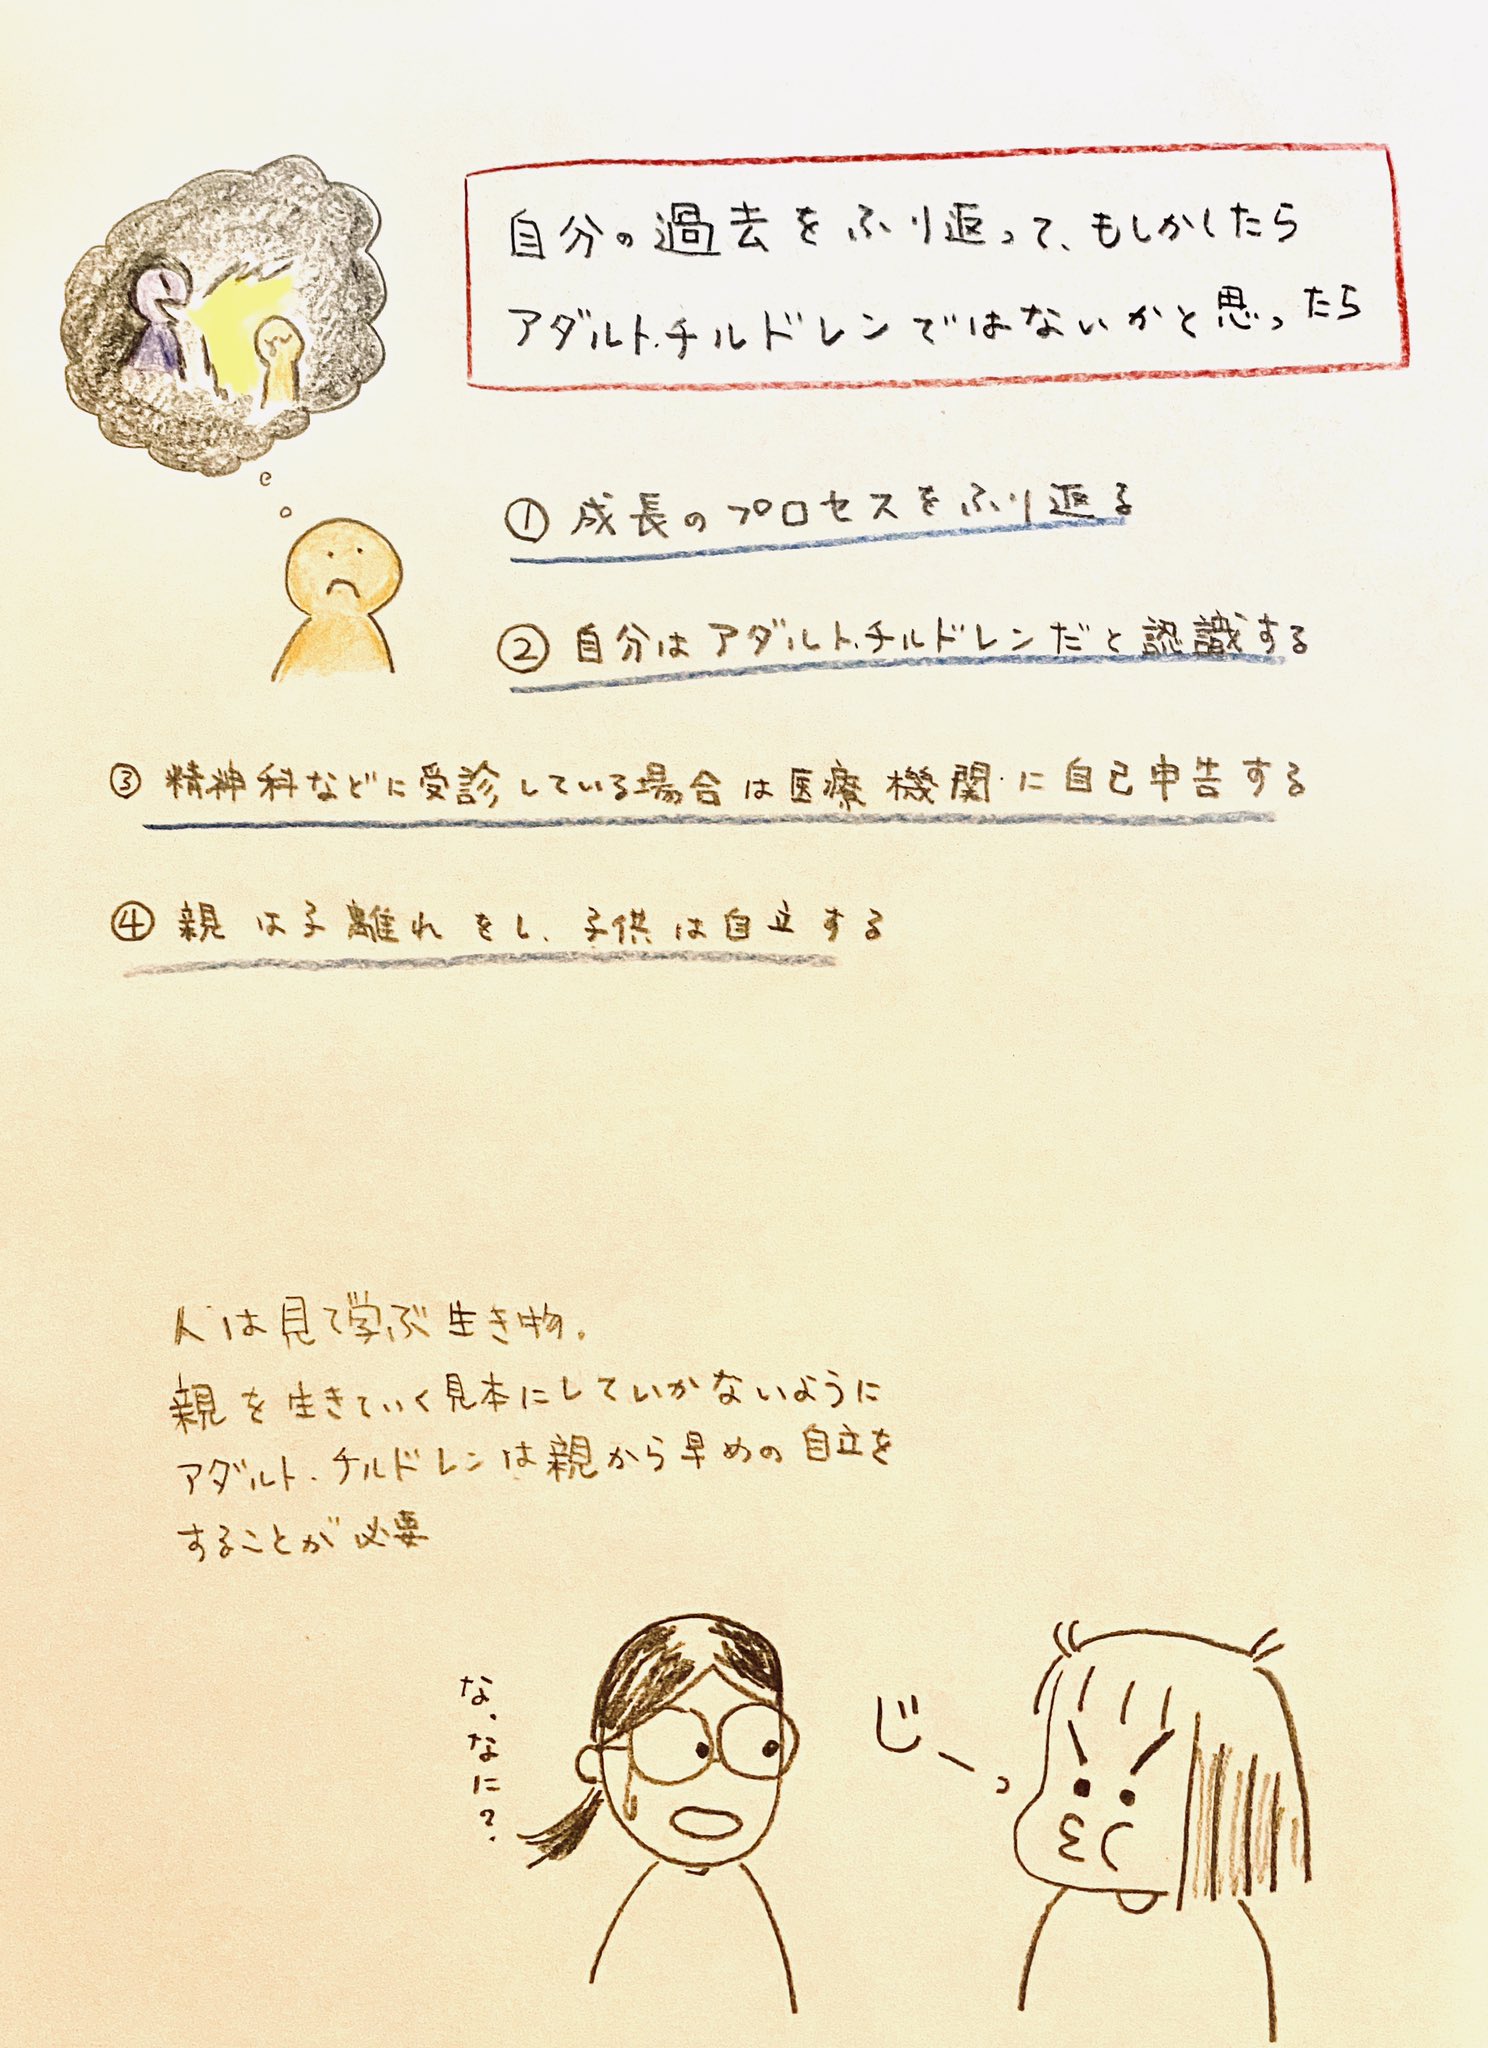 自分の過去をふり返って、もしかしたら
アダルト・チルドレンではないかと思ったら
① 成長のプロセスをふり返る
② 自分はアダルト・チルドレンだと認識する
③ 精神科などに受診している場合は医療機関に自己申告する
④ 親は子離れをし、子供は自立する
人は見て学ぶ生き物。
親を生きていく見本にしていかないように
アダルト・チルドレンは親から早めの自立を
することが必要
な、なに?
じーっ